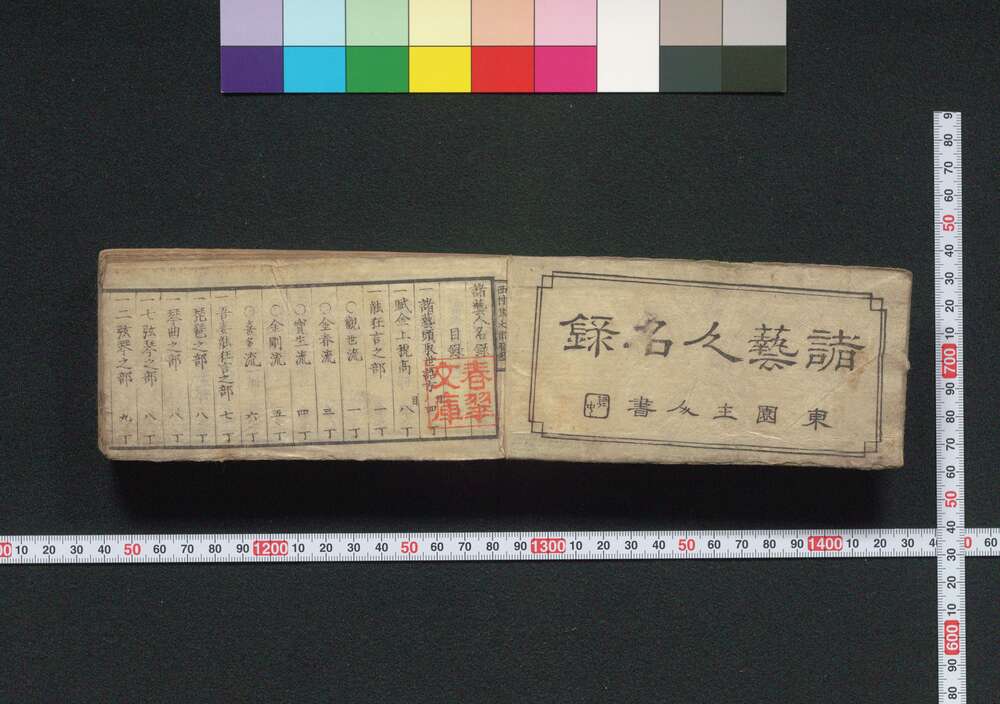 諸藝人名録
東園主人書
諸藝人名録
目録
一諸藝頭取世話方 四丁
一賦金上税高 八丁
一能狂言之部 一丁
〇觀世流 一丁
〇金春流 三丁
〇寶生流 四丁
〇金剛流 五丁
〇喜多流 六丁
一吾吾能狂言之部 七丁
一琵琶之部 八丁
一琴曲之部 八丁
一七弦琴之部 八丁
一二弦琴之部 九丁
春翠
文庫
00 10 20 30 40 50 60 70 80 90 1200 10 20 30 40 50 60 70 80 90 1300 10 20 30 40 50 60 70 80 90 1400 10 20 30
80 50 40 30 20 10 700 90 80 70 60 50 40 30 20 10 600 90 80